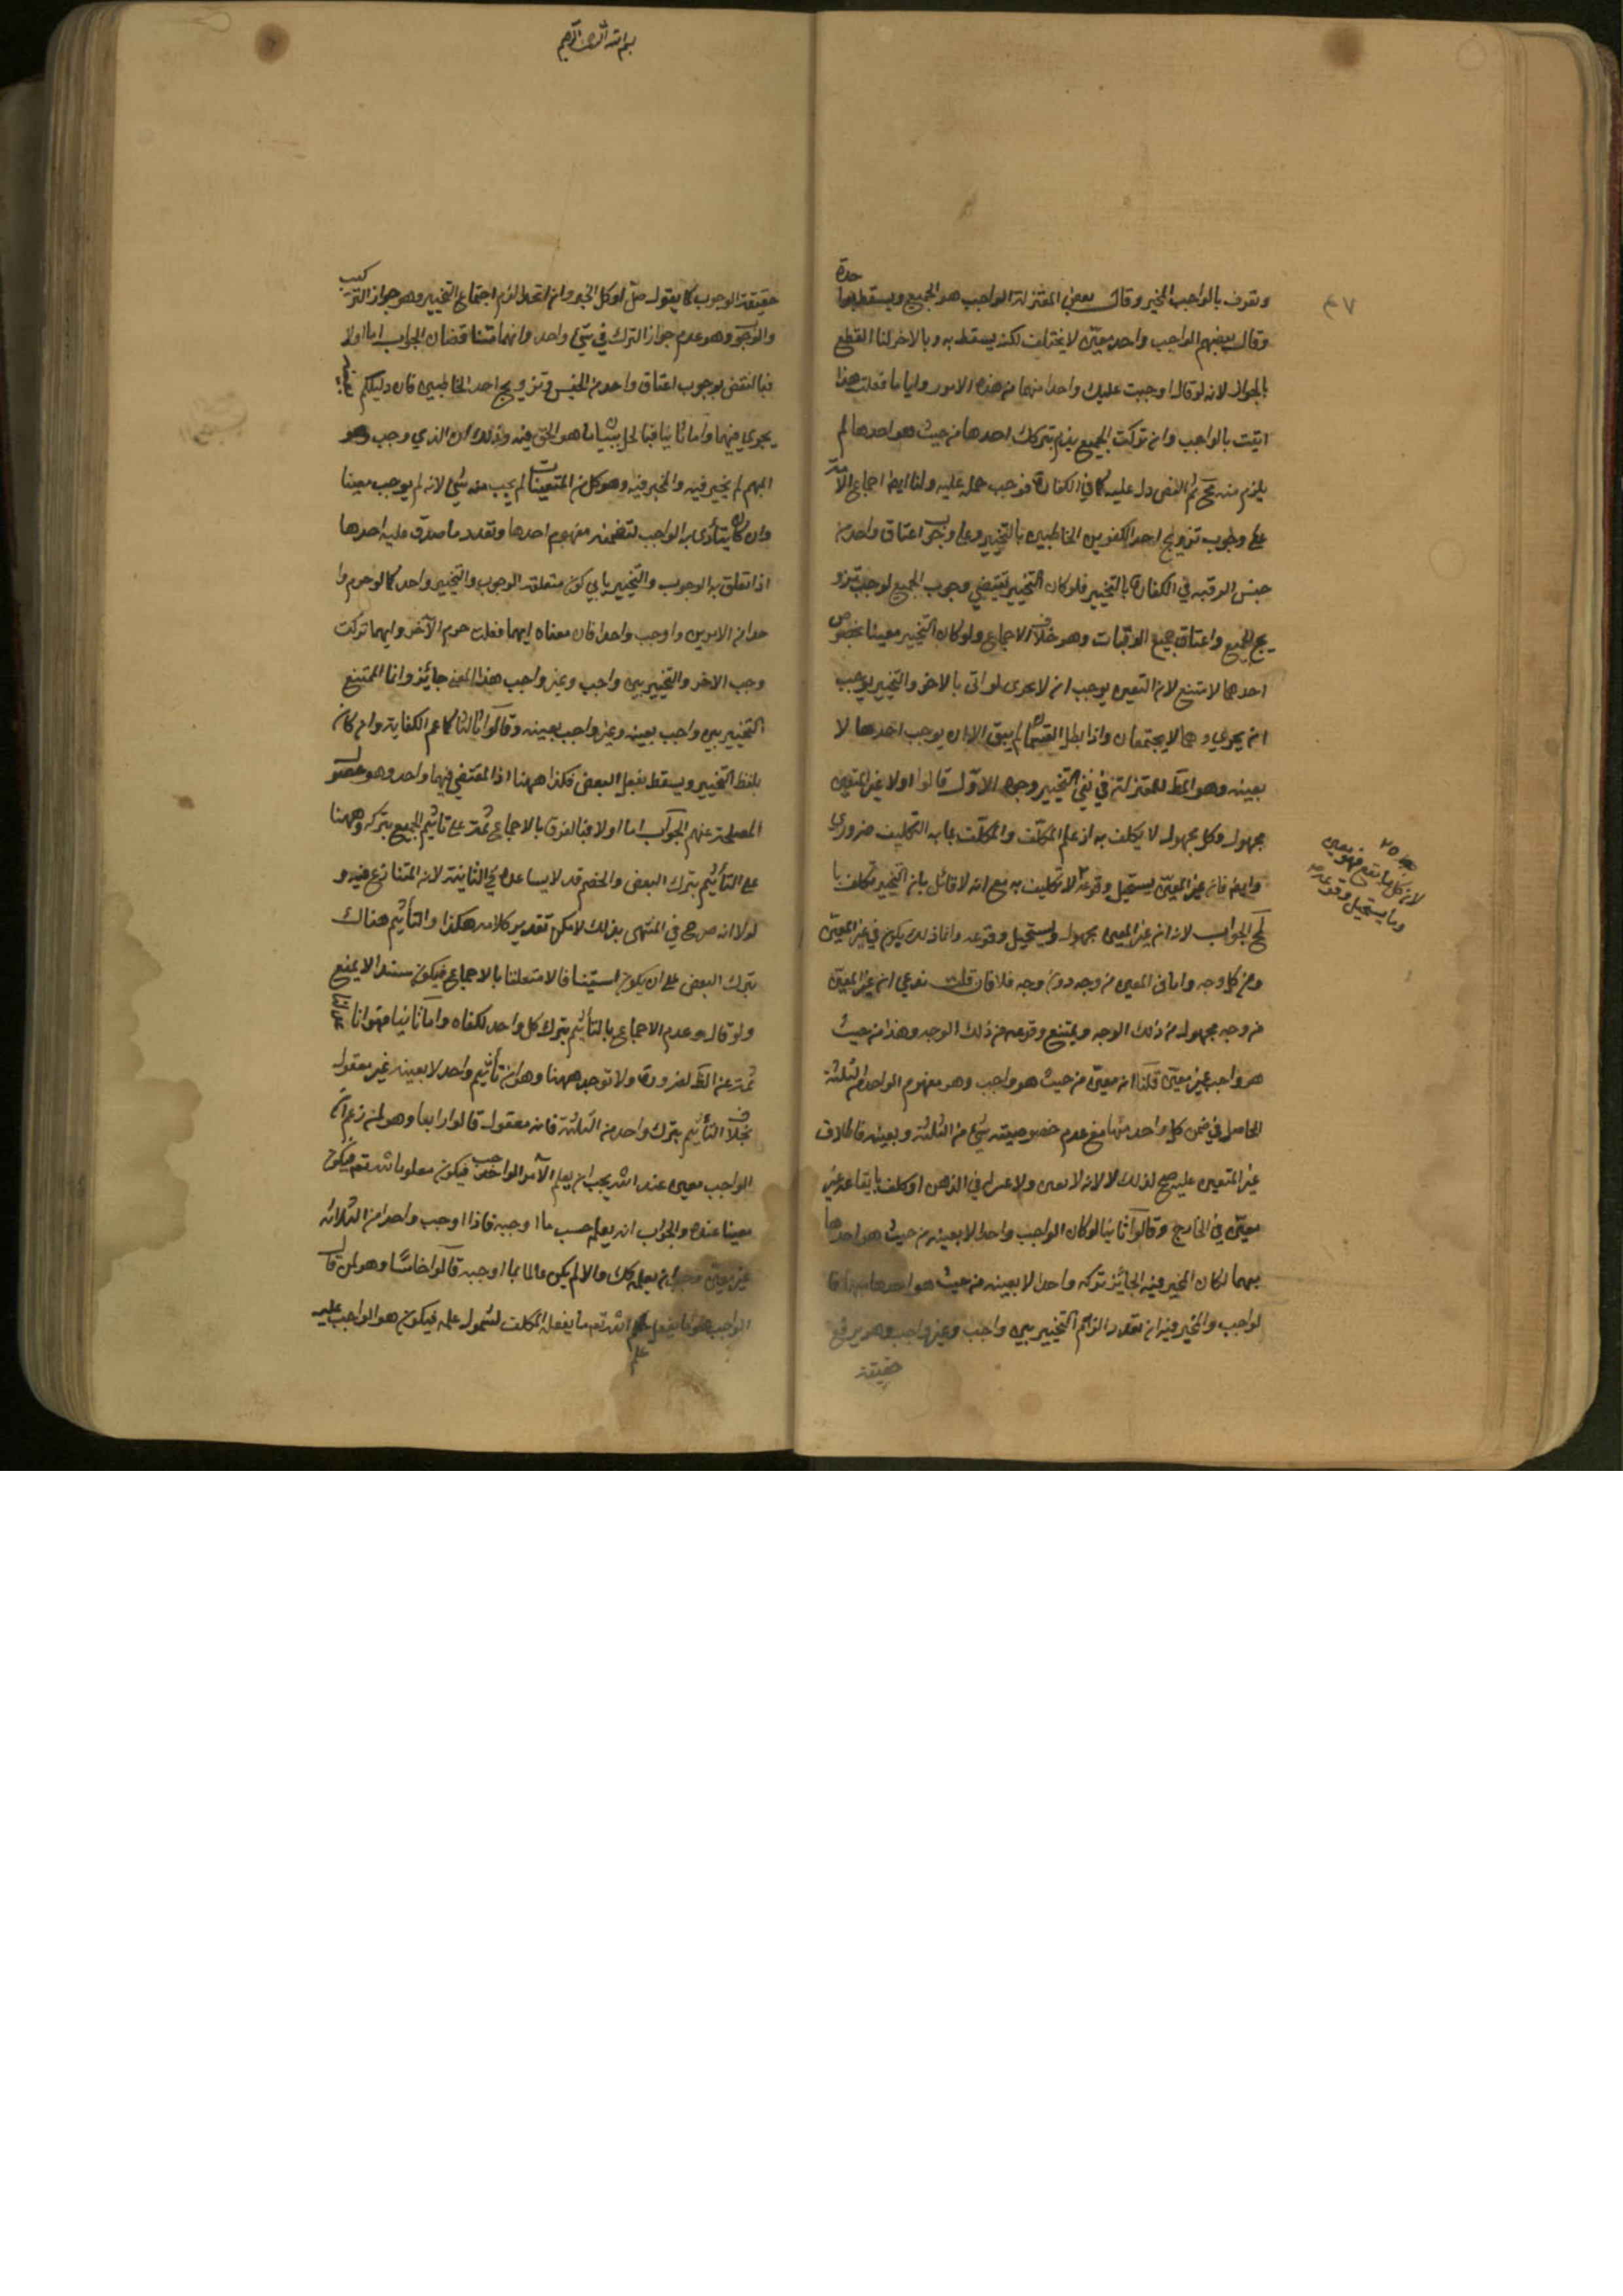 وتعرف بالواجب المخير وقال بعض المعتزلة الواجب هو الجميع ويسقط بواحدة
وقال بعضهم الواجب واحد معين لا يختلف لكنه يسقط به وبالاخر لنا القطع
بالجواز لانه لو قال اوجبت عليك واحدا منهما من هذه الامور وايا ما فعلت هذا
اتيت بالواجب وان تركت الجميع يذم بتركك احدها من حيث هو احدها لم
يلزم منه مح ثم النص دل عليه كما في الكفارة فوجب حمله عليه ولنا ايضا اجماع الامة
على وجوب تزويج احد الكفوين الخاطبين بالتخيير وعلى وجوب اعتاق واحد من
جنس الرقبة في الكفارة بالتخيير فلو كان التخيير يقتضي وجوب الجميع لوجب تزو
يج الجميع واعتاق جميع الرقبات وهو خلاف الاجماع ولو كان التخيير معينا بخصوص
احدهما لامتنع لان التعيين يوجب ان لا يجزى لو اتى بالاخر والتخيير يوجب
ان يجزي وهما لا يجتمعان واذا بطل القسمان لم يبق الا ان يوجب احدها لا
بعينه وهو المط للمعتزلة في نفي التخيير وجوه الاول قالوا اولا غير المعين
مجهول وكل مجهول لا يكلف به اذ علم المكلِّف والمكلَّف بما به التكليف ضروري
وايضا فان غير المعين يستحيل وقوعه فلا تكليف به مع انه لا قائل بان التخيير تكليف با
لمح الجواب لانم ان غير المعين مجهول ويستحيل وقوعه وانما ذلك يكون في غير المعين
من كل وجه واما في المعين من وجه دون وجه فلا فان قلت ندعي ان غير المعين
من وجه مجهول من ذلك الوجه ويمتنع وقوعه من ذلك الوجه وهذا من حيث
هو واجب غير معين قلنا انه معين من حيث هو واجب وهو مفهوم الواحد من الثلثة
الحاصل في ضمن كل واحد منها مع عدم خصوصية شيء من الثلثة وبعينه فاطلاق
غير المتعين عليه صح لذلك لا لانه لا تعين ولا في الذهن او كلف بايقاعه غير
معين في الخارج وقالوا ثانيا لو كان الواجب واحدا لا بعينه من حيث هو احدها
مبهما لكان المخير فيه الجائز تركه واحدا لا بعينه من حيث هو احدها فا
لواجب والمخير فيه ان تعددا لزم التخيير بين واجب وغير واجب وهو يرفع
حقيقة
٤٧
لان كل ما يقع فهو معين
وما يستحيل وقوعه
بسم الله الرحمن الرحيم
حقيقة الوجوب كما يقول صلّ او كل الخبز وان اتحدا لزم اجتماع التخيير وهو جواز الترك
والوجوب وهو عدم جواز الترك في شيء واحد وانهما متناقضان الجواب اما اولا
فبالنقض بوجوب اعتاق واحد من الجنس وتزويج احد الخاطبين فان دليلكم
يجري فيهما واما ثانيا فبالحل ببيان ما هو الحق فيه وذلك ان الذي وجب وهو
المبهم لم يخير فيه والمخير فيه وهو كل من المتعينات لم يجب منه شيء لانه لم يوجب معينا
وان كان يتأدى به الواجب لتضمنه مفهوم احدها وتعدد ما صدق عليه احدها
اذا تعلق به الوجوب والتخيير يابى كون متعلق الوجوب والتخيير واحدا كما لو حرم وا
حدا من الامرين واوجب واحدا فان معناه ايهما فعلت حرم الآخر وايهما تركت
وجب الاخر والتخيير بين واجب وغير واجب بهذا المعنى جائز وانما الممتنع
التخيير بين واجب بعينه وغير واجب بعينه وقالوا ثالثا كما عم الكفاية وان كان
بلفظ التخيير ويسقط بفعل البعض فكذا ههنا اذ المقتضي فيهما واحد وهو حصول
المصلحة عنهم الجواب اما اولا فبالفرق بالاجماع ثمة على تاثيم الجميع بتركه وههنا
على التأثيم بترك البعض والخصم قد لا يساعده في الثانية لانه المتنازع فيه و
لولا انه صرح في المنتهى بذلك لامكن تقدير كلامه هكذا والتأثيم هناك
بترك البعض على ان يكون استينافا لا متعلقا بالاجماع فيكون سندا لا يمنع
ولو قال وعدم الاجماع بالتأثيم بترك كل واحد لكفاه واما ثانيا فهو انا
ثمة عن الظ لضرورة ولا توجد ههنا وهو ان تأثيم واحد لا بعينه غير معقول
بخلاف التأثيم بترك واحد من الثلثة فانه معقول قالوا رابعا وهو لمن زعم ان
الواجب معين عند الله يجب ان يعلم الآمر الواجب فيكون معلوما لله تعم فيكون
معينا عنده والجواب انه يعلم حسب ما اوجبه فاذا اوجب واحدا من الثلاثة
غير معين وجب ان يعلمه كك والا لم يكن عالما بما اوجبه قالوا خامسا وهو لمن قال
الواجب هو ما يفعل علم الله تعم ما يفعله المكلف لشمول علمه فيكون هو الواجب عليه
علم